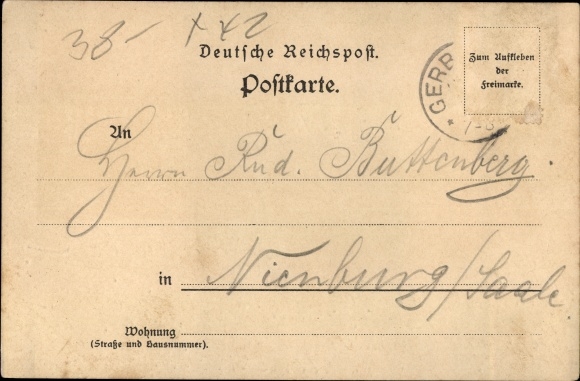 38- x x2
Deutsche Reichspost.
Postkarte.
Zum Aufkleben
der
Freimarke.
* GERB
7-8
An
Herrn Rud. Buttenberg.
in Nienburg/Saale
Wohnung
(Straße und Hausnummer).